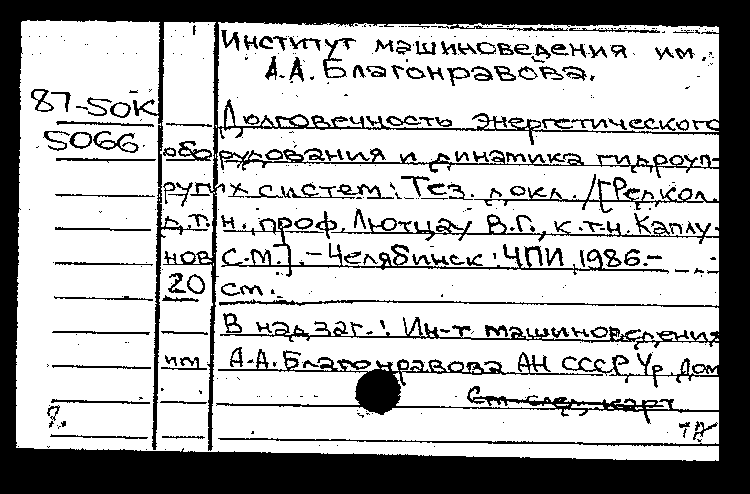 Институт машиноведения им.
А.А. Благонравова.
87-50К
5066
Долговечность энергетического
оборудования и динамика гидроуп-
ругих систем: Тез. докл. /[Редкол.
д.т.н., проф. Лютцау В.Г., к.т.н. Каплу-
нов С.М.]. - Челябинск: ЧПИ, 1986. -
20 см.
В надзаг.: Ин-т машиноведения
им. А.А. Благонравова АН СССР, Ур. Дом
См. след. карт